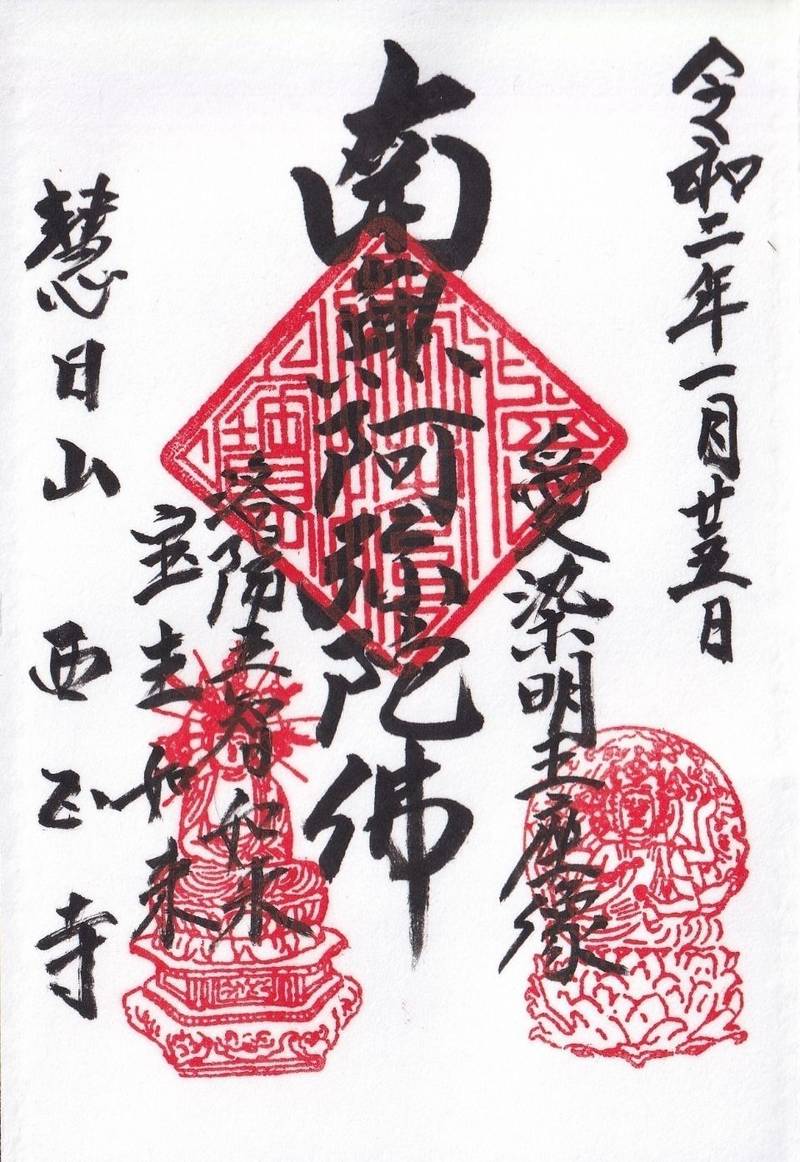 令和二年一月廿五日
愛染明王座像
南無阿弥陀佛
洛陽五智如来
宝生如来
慧日山 西正寺